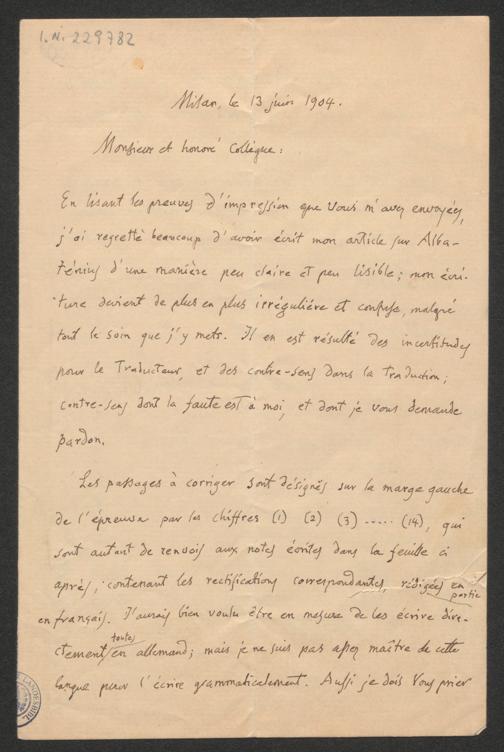 I.N. 229782
Milan, le 13 juin 1904.
Monsieur et honoré Collègue:
En lisant les preuves d'impression que Vous m'avez envoyées,
j'ai regretté beaucoup d'avoir écrit mon article sur Alba-
ténius d'une manière peu claire et peu lisible; mon écri-
ture devient de plus en plus irrégulière et confuse, malgré
tout le soin que j'y mets. Il en est résulté des incertitudes
pour le Traducteur, et des contre-sens dans la traduction;
contre-sens dont la faute est à moi, et dont je vous demande
pardon.
Les passages à corriger sont désignés sur la marge gauche
de l'épreuve par les chiffres (1) (2) (3) ..... (14), qui
sont autant de renvois aux notes écrites dans la feuille ci
après, contenant les rectifications correspondantes, rédigées en partie
en français. J'aurais bien voulu être en mesure de les écrire dire-
ctement toutes en allemand; mais je ne suis pas assez maître de cette
langue pour l'écrire grammaticalement. Aussi je dois Vous prier
LANDESBIBL